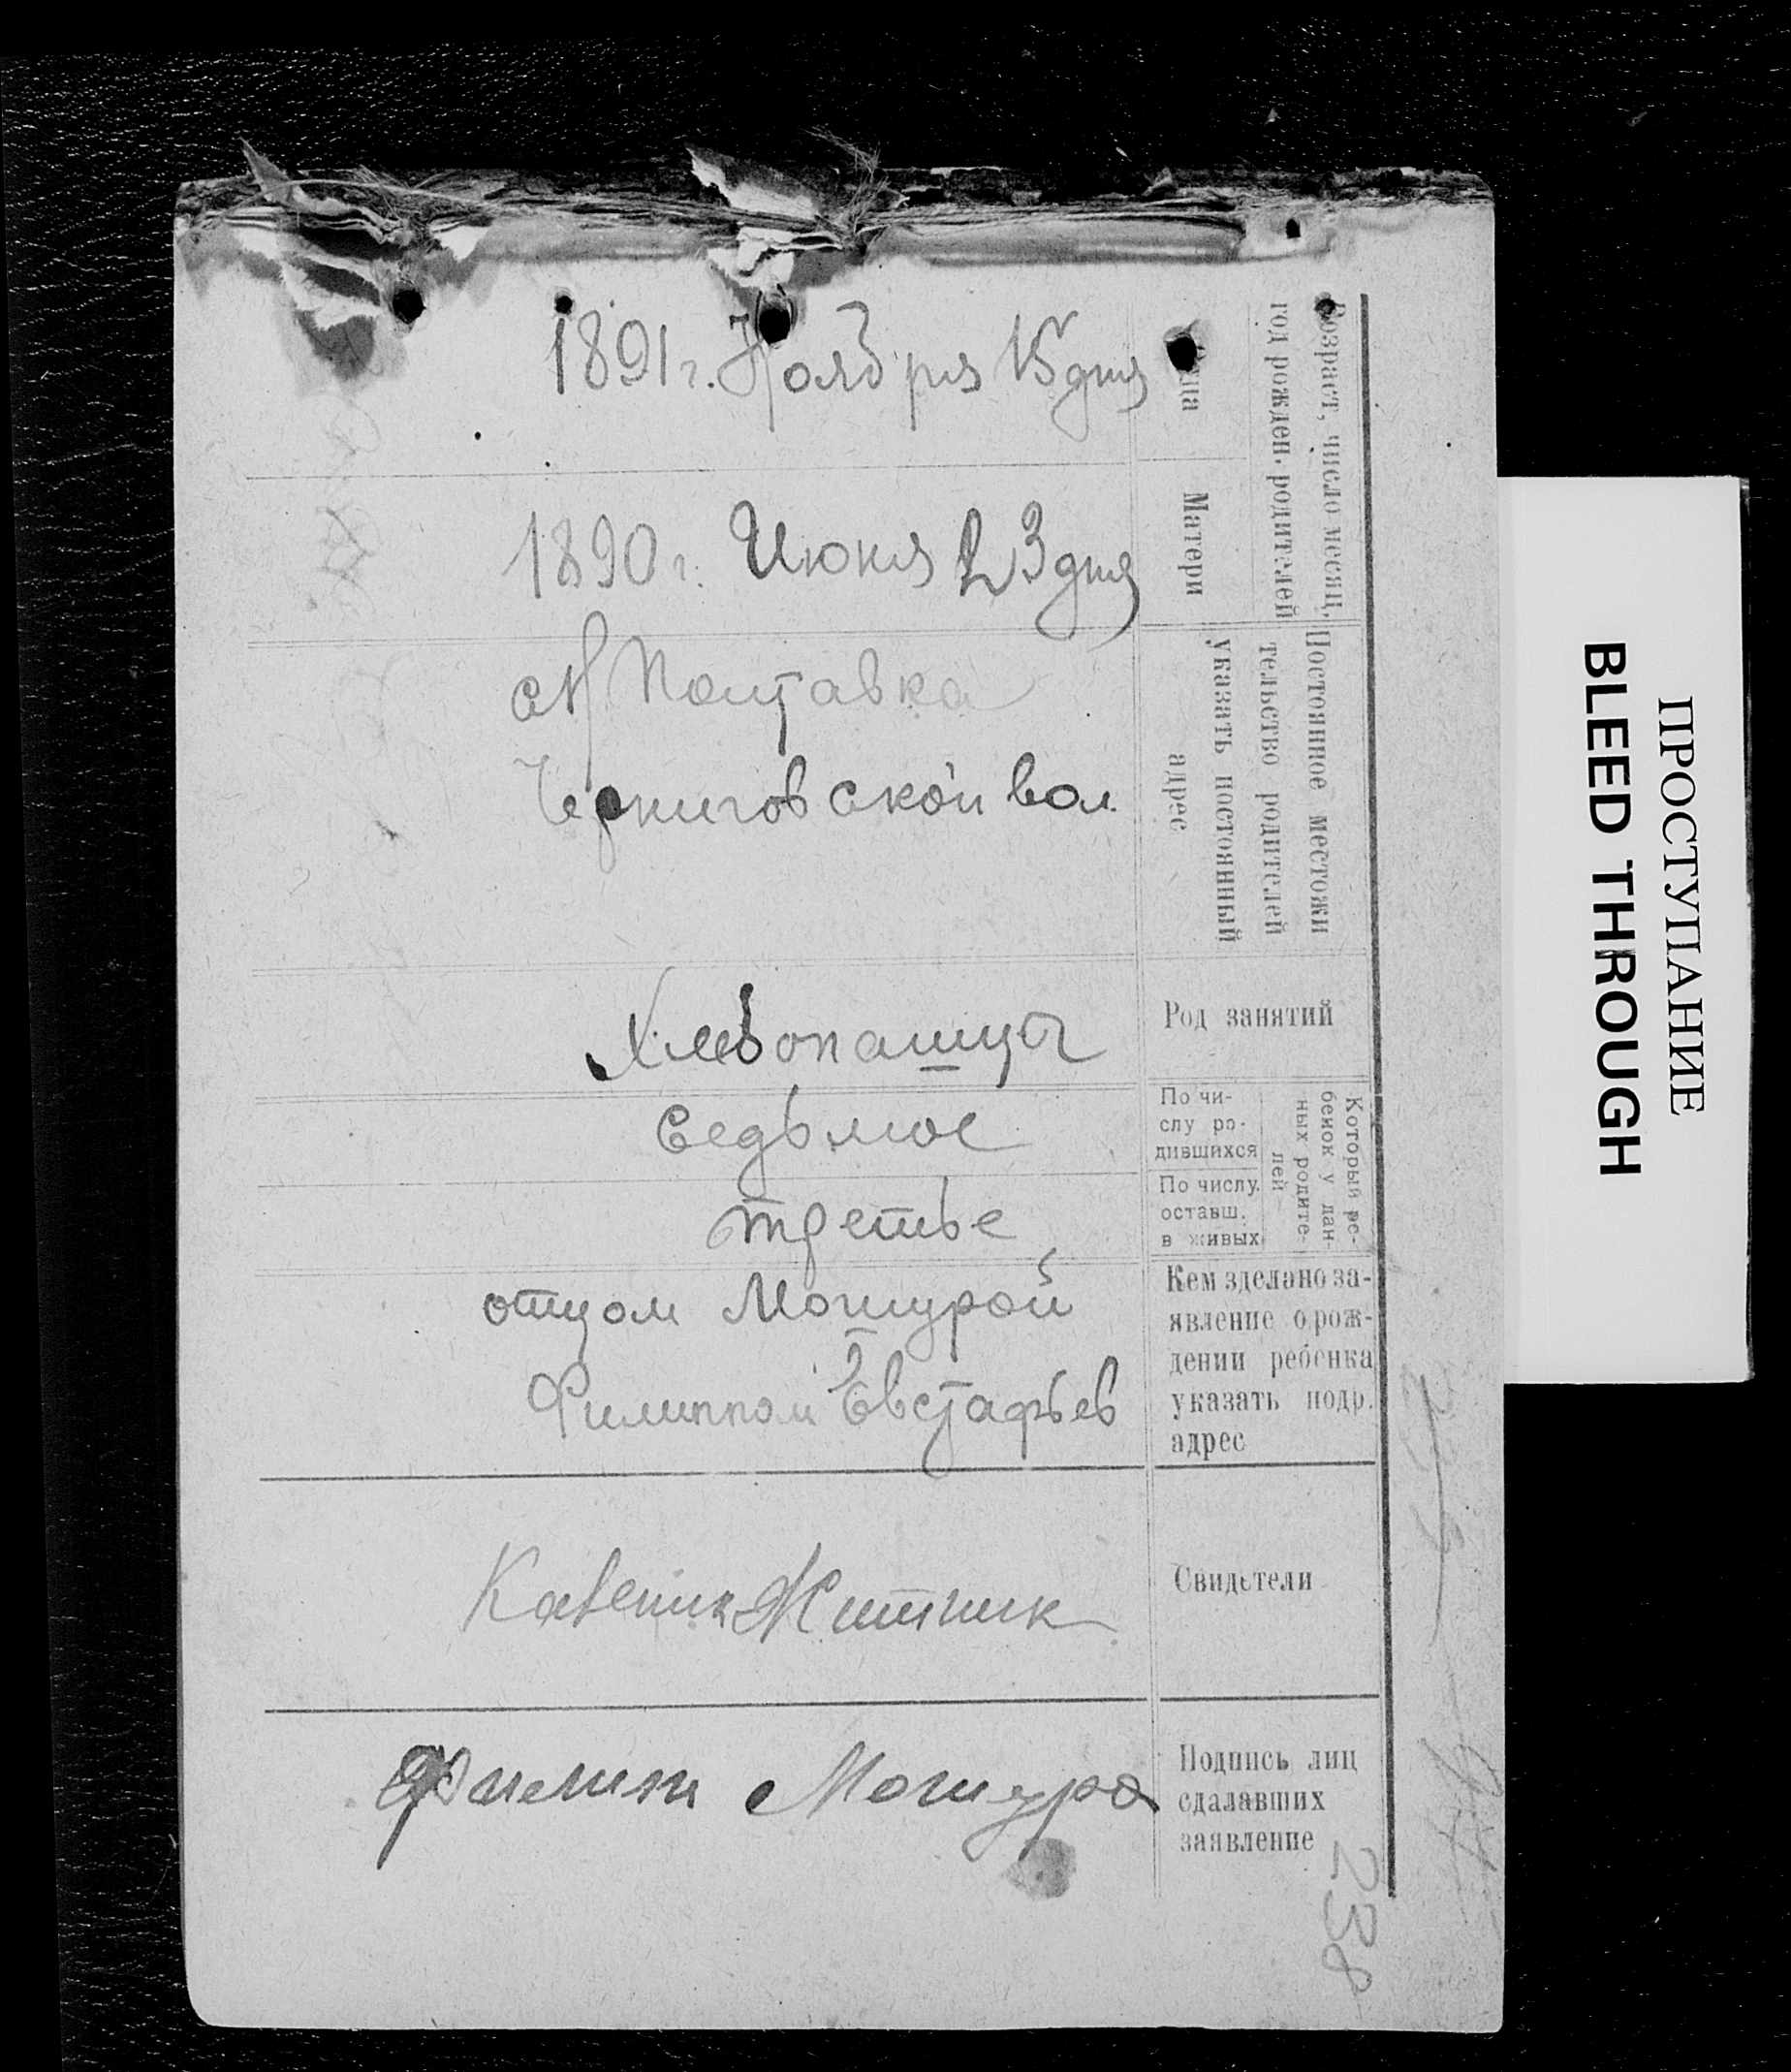 Возраст, число месяц,
год рожден. родителей
1891 г. Ноября 15 дня
Матери
1890 г. Июня 23 дня
Постоянное местожи
тельство родителей
указать постоянный
адрес
Полтавка
Черниговской вол.
Род занятий
Хлебопашцы
Который ре-
бенок у дан-
ных родите-
лей
По чи-
слу ро-
дившихся
Седьмое
По числу.
оставш.
в живых
третье
Кем зделано за-
явление о рож-
дении ребенка
указать подр.
адрес
отцом Мошурой
Филиппом Евстафьев
Свидетели
Житник
Подпись лиц
сдалавших
заявление
Филипп Мошура
238
ПРОСТУПАНИЕ
BLEED THROUGH